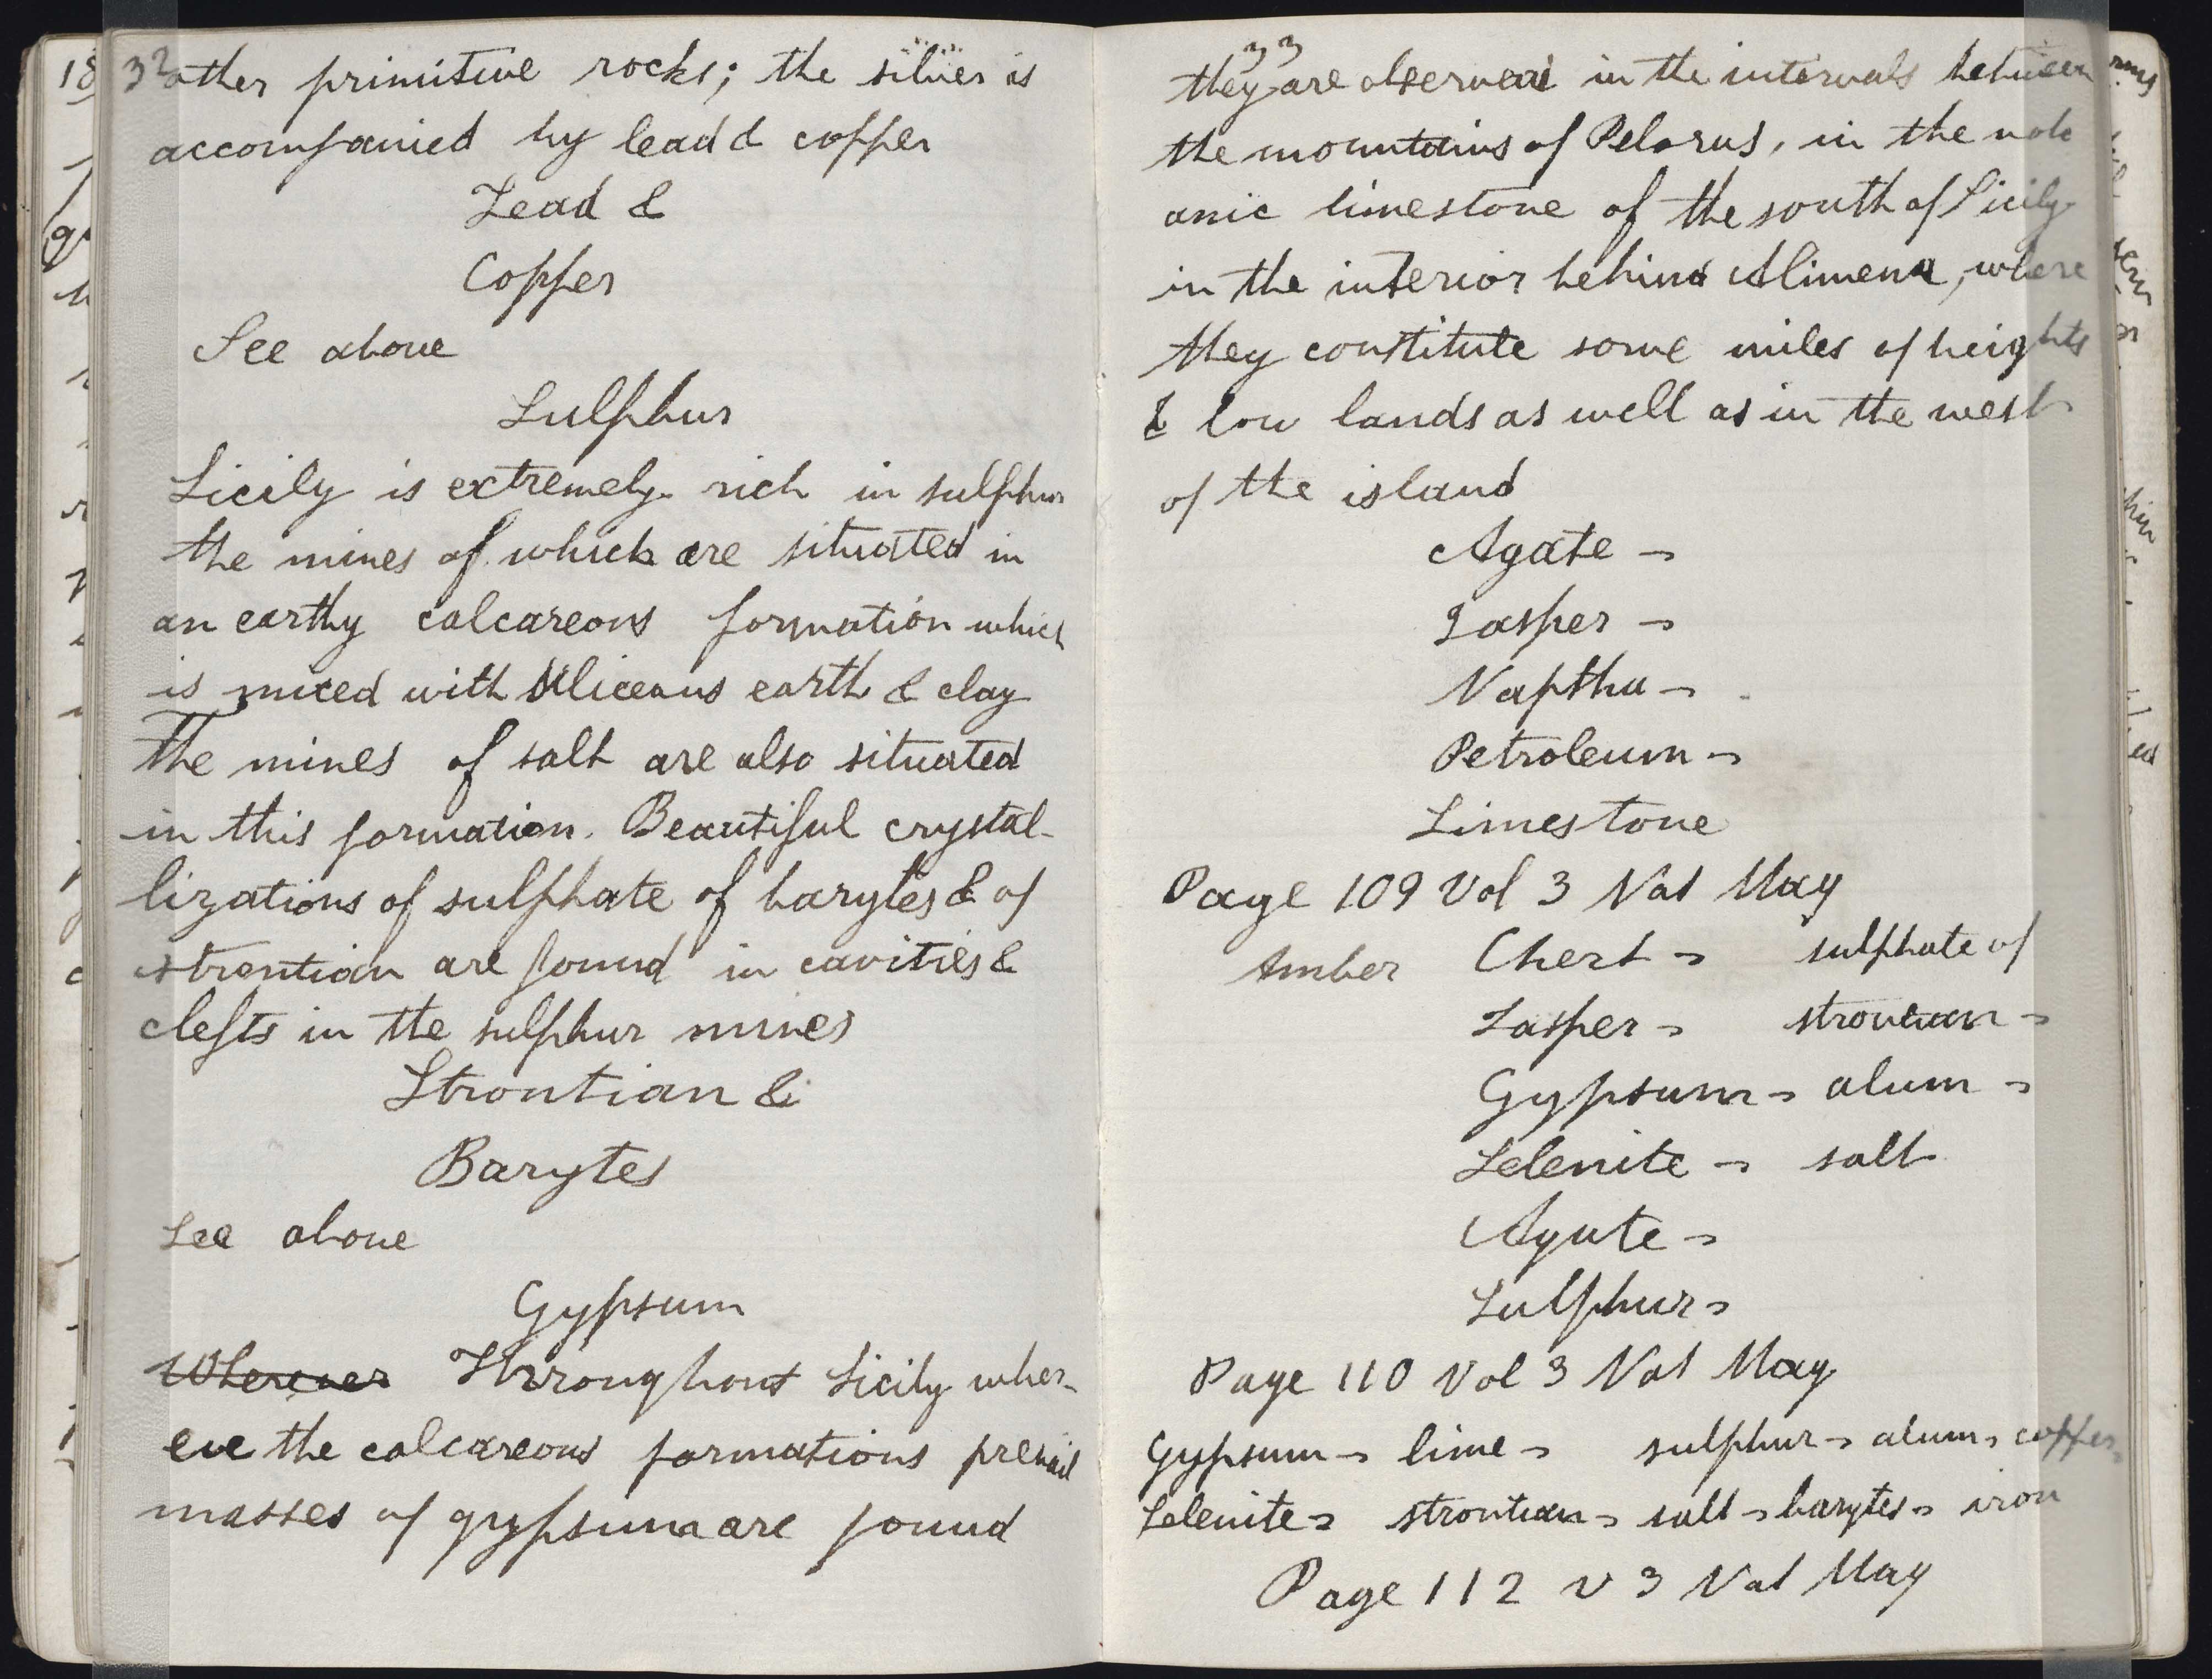 32
other primitive rocks; the silver is
accompanied by lead & copper
Lead &
Copper
See above
Sulphur
Sicily is extremely rich in sulphur
the mines of which are situated in
an earthy calcareous formation which
is mixed with siliceous earth & clay
The mines of salt are also situated
in this formation. Beautiful crystal-
lizations of sulphate of barytes & of
strontian are found in cavities &
clefts in the sulphur mines
Strontian &
Barytes
See above
Gypsum
Wherever Throughout Sicily wher-
eve the calcareous formations prevail
masses of gypsum are found
33
they are observed in the intervals between
the mountains of Pelorus, in the volc
anic limestone of the south of Sicily
in the interior behind Alimena, where
they constitute some miles of heights
& low lands as well as in the west
of the island
Agate -
Jasper -
Naptha -
Petroleum -
Limestone
Page 109 Vol 3 Nat May
Amber Chert - sulphate of
Jasper - strontian -
Gypsum - alum -
Selenite - salt
Agate -
Sulphur -
Page 110 Vol 3 Nat May
Gypsum - lime - sulphur - alum - copper -
Selenite - strontian - salt - barytes - iron
Page 112 v 3 Nat May